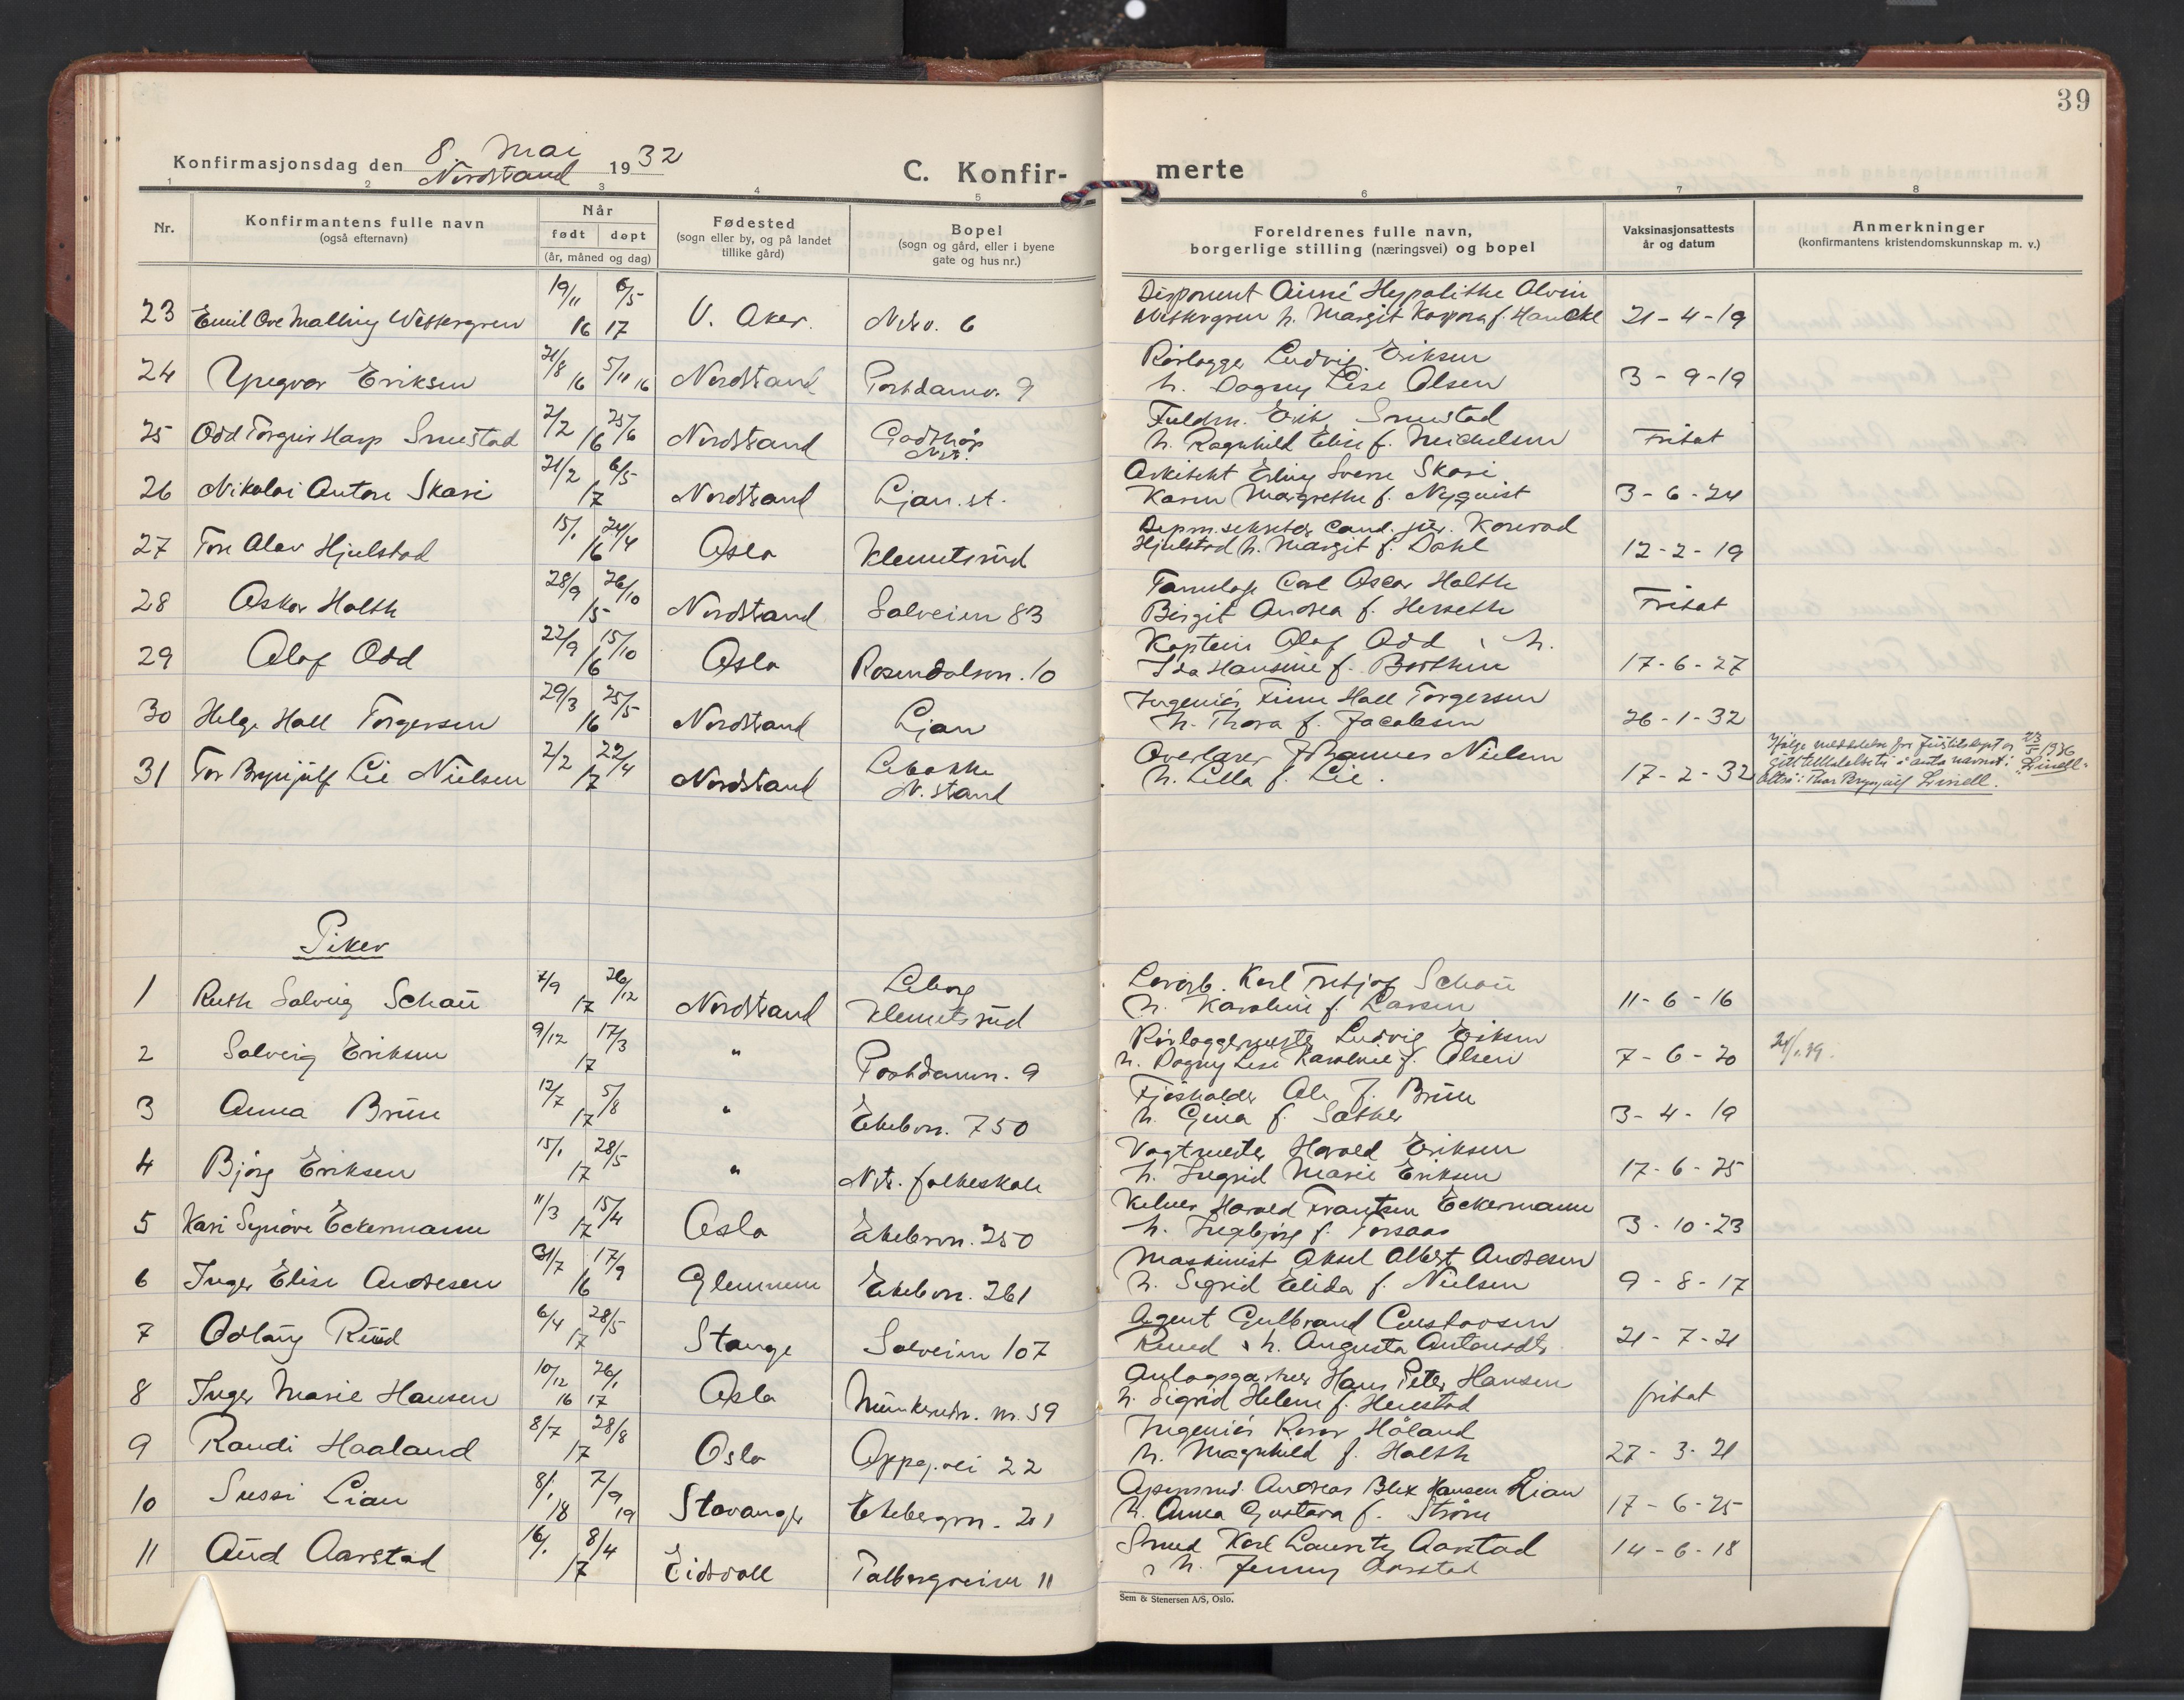 39
Konfirmasjonsdag den 8. Mai 1932
Nordstrand
C. Konfirmerte
1 2 3 4 5 6 7 8
Nr.
Konfirmantens fulle navn
(også efternavn)
Når
født døpt
(år, måned og dag)
Fødested
(sogn eller by, og på landet
tillike gård)
Bopel
(sogn og gård, eller i byene
gate og hus nr.)
Foreldrenes fulle navn,
borgerlige stilling (næringsvei) og bopel
Vaksinasjonsattests
år og datum
Anmerkninger
(konfirmantens kristendomskunnskap m. v.)
19/11 6/5 Disponent Aimé Hypolithe Alvin
23 Emil Ove Malling Westergren 16 17 V. Aker. N.str.v. 6 Westergren h. Margit f. Hancke 21-4-19
21/8 5/11 Rørlegger Ludvig Eriksen
24 Yngvar Eriksen 16 16 Nordstrand 9 h. Dagny Lise Olsen 3-9-19
2/2 25/6 Erik Smestad
25 Odd Torgeir Harp Smestad 16 Nordstrand Godthåp h. Ragnhild Elise f. Michelsen Fritat
N.str.
21/2 6/5 Arkitekt Erling Sverre Skari
26 Nikolai Anton Skari 17 Nordstrand Ljan.st. Karen Margrethe f. Nyquist 3-6-24
15/1 24/4 Depm.sekretær cand. jur. Konrad
27 Tore Alav Hjelstad 16 Oslo Klemetsrud Hjelstad h. Margit f. Dahl 12-2-19
28/9 26/10 Carl Oscar Holth
28 Oskar Holth 15 Nordstrand Solveien 83 Birgit Andrea f. Herseth Fritat
22/9 15/10 Kaptein Olaf Odd h.
29 Olaf Odd 16 Oslo Rosendalsvn. 10 Ida Hansine f. 17-6-27
29/3 25/5 Ingeniør Finn Hall Torgersen
30 Helge Hall Torgersen 16 Nordstrand Ljan h. Thora f. Jacobsen 26-1-32
2/2 22/4 Overlærer Johannes Nielsen
31 Tor Brynjulf Lie Nielsen 17 Nordstrand Libakke h. Lilla f. Lie. 17-2-32
N.strand
Ifølge meddelelse fra Justitsdept av 23/5 1936
gitt tillatelse til å anta navnet: "Linell"
Altså: Thor Brynjulf Linell.
Piker
7/9 26/12 Liborg Karl Fritjof Schau
1 Ruth Solveig Schau 17 Nordstrand Klemetsrud h. Karoline f. Larsen 11-6-16
9/12 17/3 Rørleggermester Ludvig Eriksen
2 Solveig Eriksen 17 " 9 h. Dagny Lise Karoline f. Olsen 7-6-20
12/7 5/8 Fjøsholder Ole J. Bruu
3 Anna Bruu 17 " Ekebvn. 750 h. Gina f. Sæther 3-4-19
15/1 28/5 Vagtmester Harald Eriksen
4 Bjørg Eriksen 17 " N.str. folkeskole h. Ingrid Marie Eriksen 17-6-25
11/3 15/4 Kelner Harald Frantzen Eckermann
5 Kari Synøve Eckermann 17 Oslo Ekebvn. 250 h. Ingebjørg f. Torsaas 3-10-23
31/7 17/9 Maskinist Aksel Albert Andresen
6 Inger Elise Andresen 16 Glemmen Ekebvn. 261 h. Sigrid Elida f. Nielsen 9-8-17
6/4 28/5 Agent Gulbrand Gustavsen
7 Odlaug Ruud 17 Stange Solveien 107 Ruud & h. Augusta Antonsdtr. 21-7-21
10/12 26/1 Anlegsgartner Hans Peter Hansen
8 Inger Marie Hansen 16 17 Oslo Munkerudv. nr. 59 h. Sigrid Helene f. Henestad fritat
8/7 28/8 Ingeniør Håland
9 Randi Haaland 17 Oslo Oppeg.vei 22 h. Magnhild f. Holth 27-3-21
8/1 7/9 Andreas Blix Hansen Lian
10 Sussi Lian 18 19 Stavanger Ekebergvn. 21 h. Anna Gustava f. Strøm 17-6-25
16/1 8/4 Smed Karl Lauritz Aarstad
11 Aud Aarstad 17 Eidsvoll Solbergveien 11 & h. Jenny Aarstad 14-6-18
Sem & Stenersen A/S, Oslo.